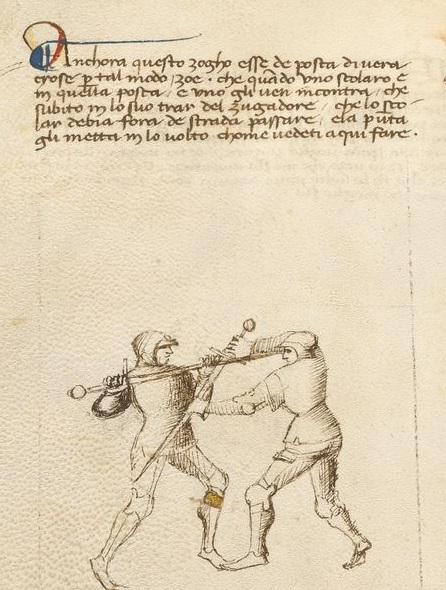 Anchora questo zogho esse de posta di vera
crose p tal modo, zoe. che quãdo uno scolaro, e
in quella posta, e uno gli ven incontra, che
subito in lo suo trar del zugadore, che lo sco-
lar debia fora de strada passare, e la pūta
gli metta in lo volto chome vedeti aqui fare.